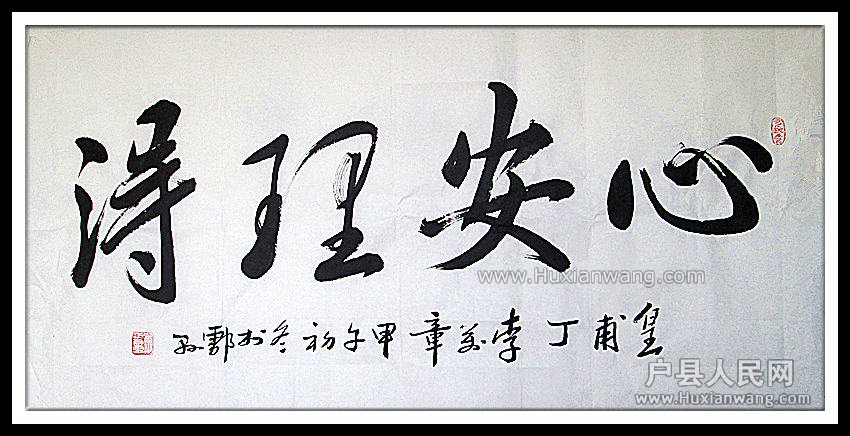 心安理得
皇甫丁李万章甲午初冬於鄠县
www.Huxianwang.com
户县人民网
www.Huxianwang.com